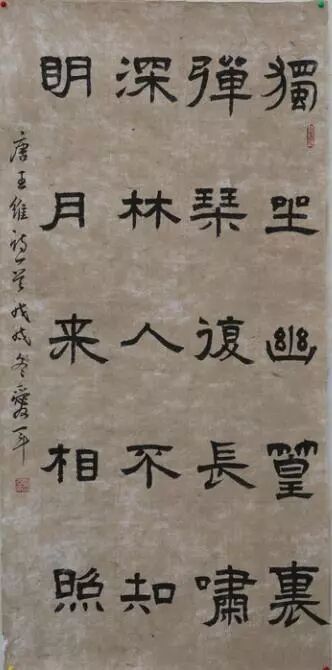 獨坐幽篁裏
彈琹復長嘯
深林人不知
明月来相照
唐王維詩一首戊戌冬愛年